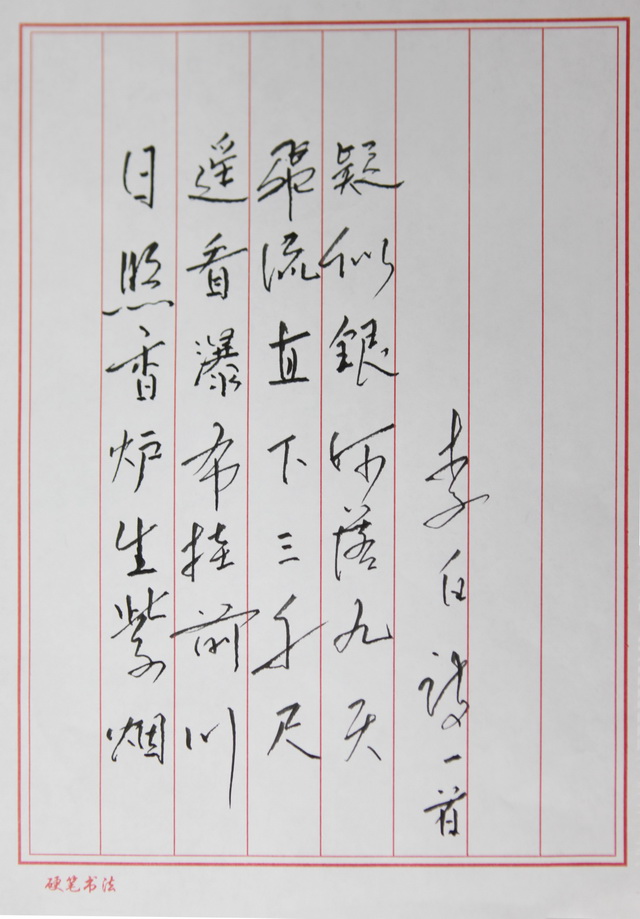 日照香炉生紫烟
遥看瀑布挂前川
飛流直下三千尺
疑似銀河落九天
李白诗一首
硬笔书法